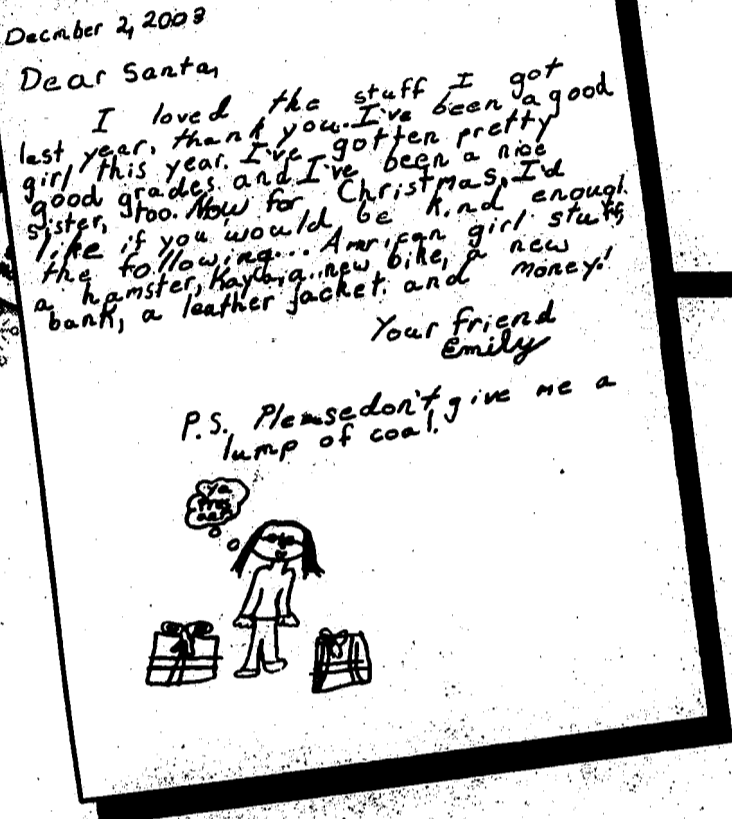 December 2, 2003
Dear Santa,
I loved the stuff I got
last year, thank you. I've been a good
girl this year. I've gotten pretty
good grades and I've been a nice
sister, too. Now for Christmas, I'd
like if you would be kind enough
the following... American girl stuff,
a hamster, new bike, a new
bank, a leather jacket. and money!
Your friend
Emily
P.S. Please don't give me a
lump of coal.